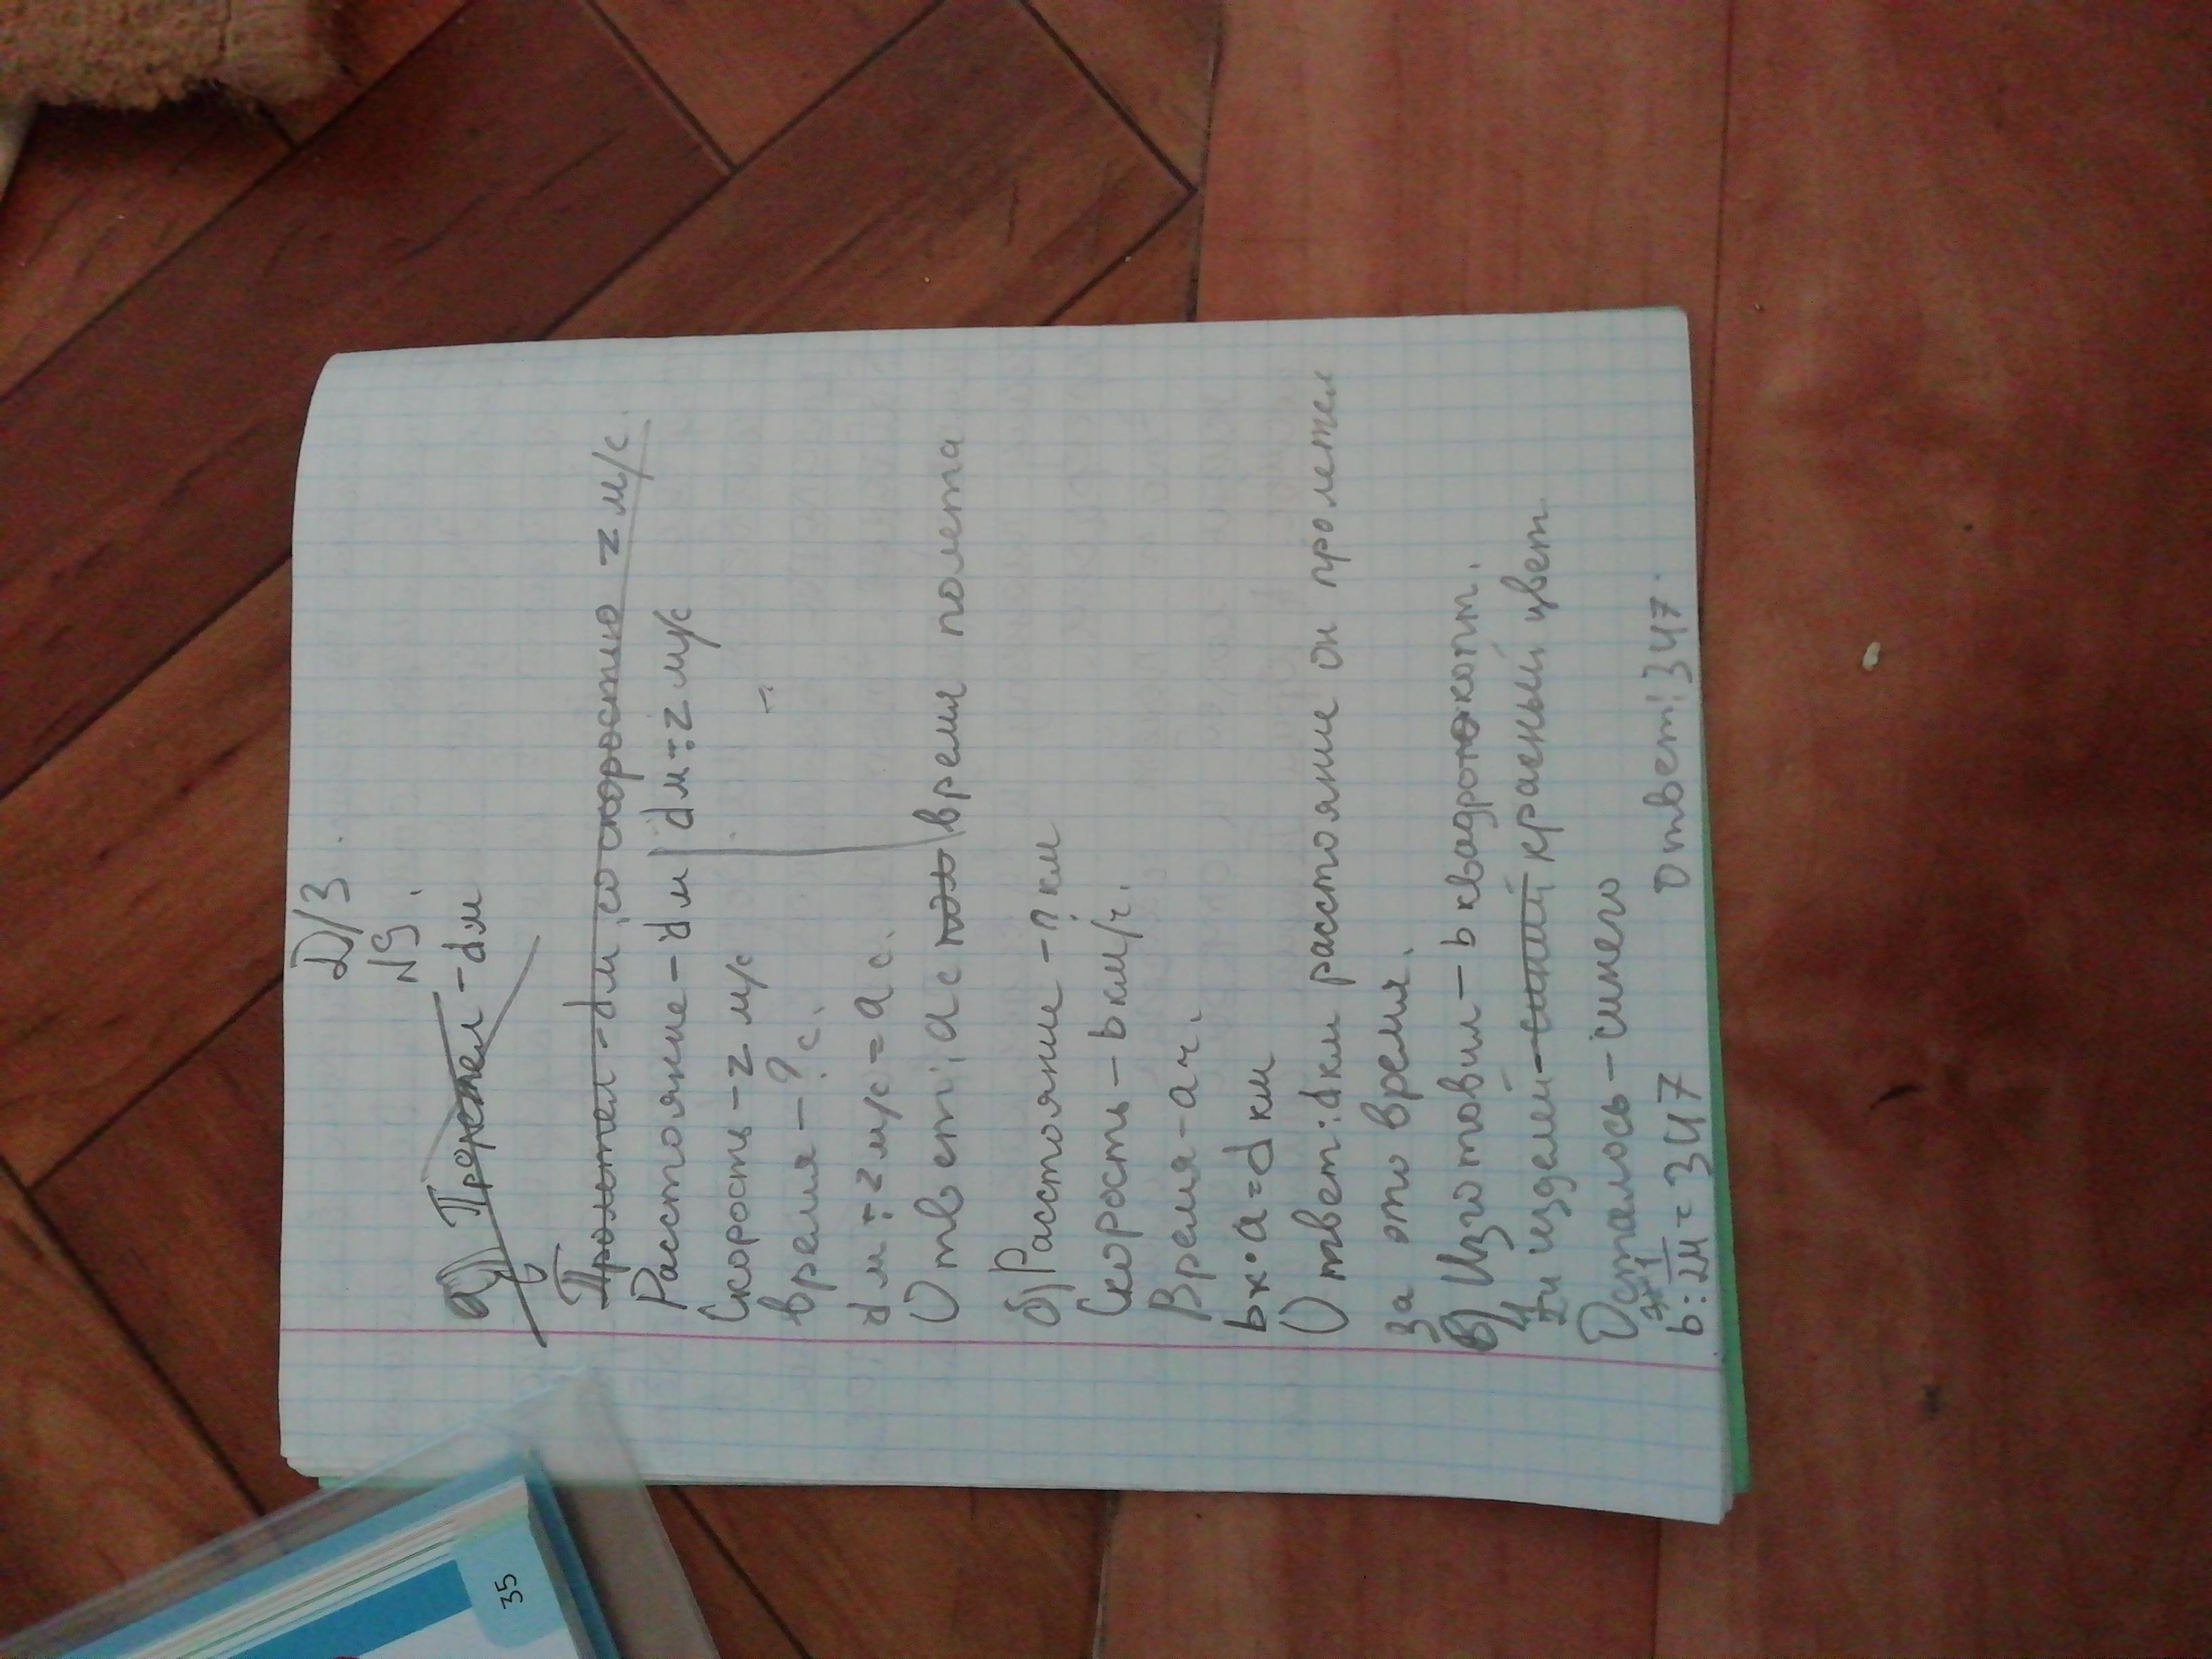 D/З
№9.
а) Пролетел - dм
Пролетел - dм, со скоростью z м/с
Расстояние - dм dм÷z м/с
Скорость - z м/с
время - ? с.
dм÷z м/с = a с.
Ответ: a с время полета
б) Расстояние - ? км
Скорость - b км/ч.
Время - a ч.
b · a = d км
Ответ: d км расстояние он пролетел
за это время.
в) Изготовил - b квадрокопт.
изделий - синий красный цвет
Осталось - синего
= 347 Ответ: 347.
35